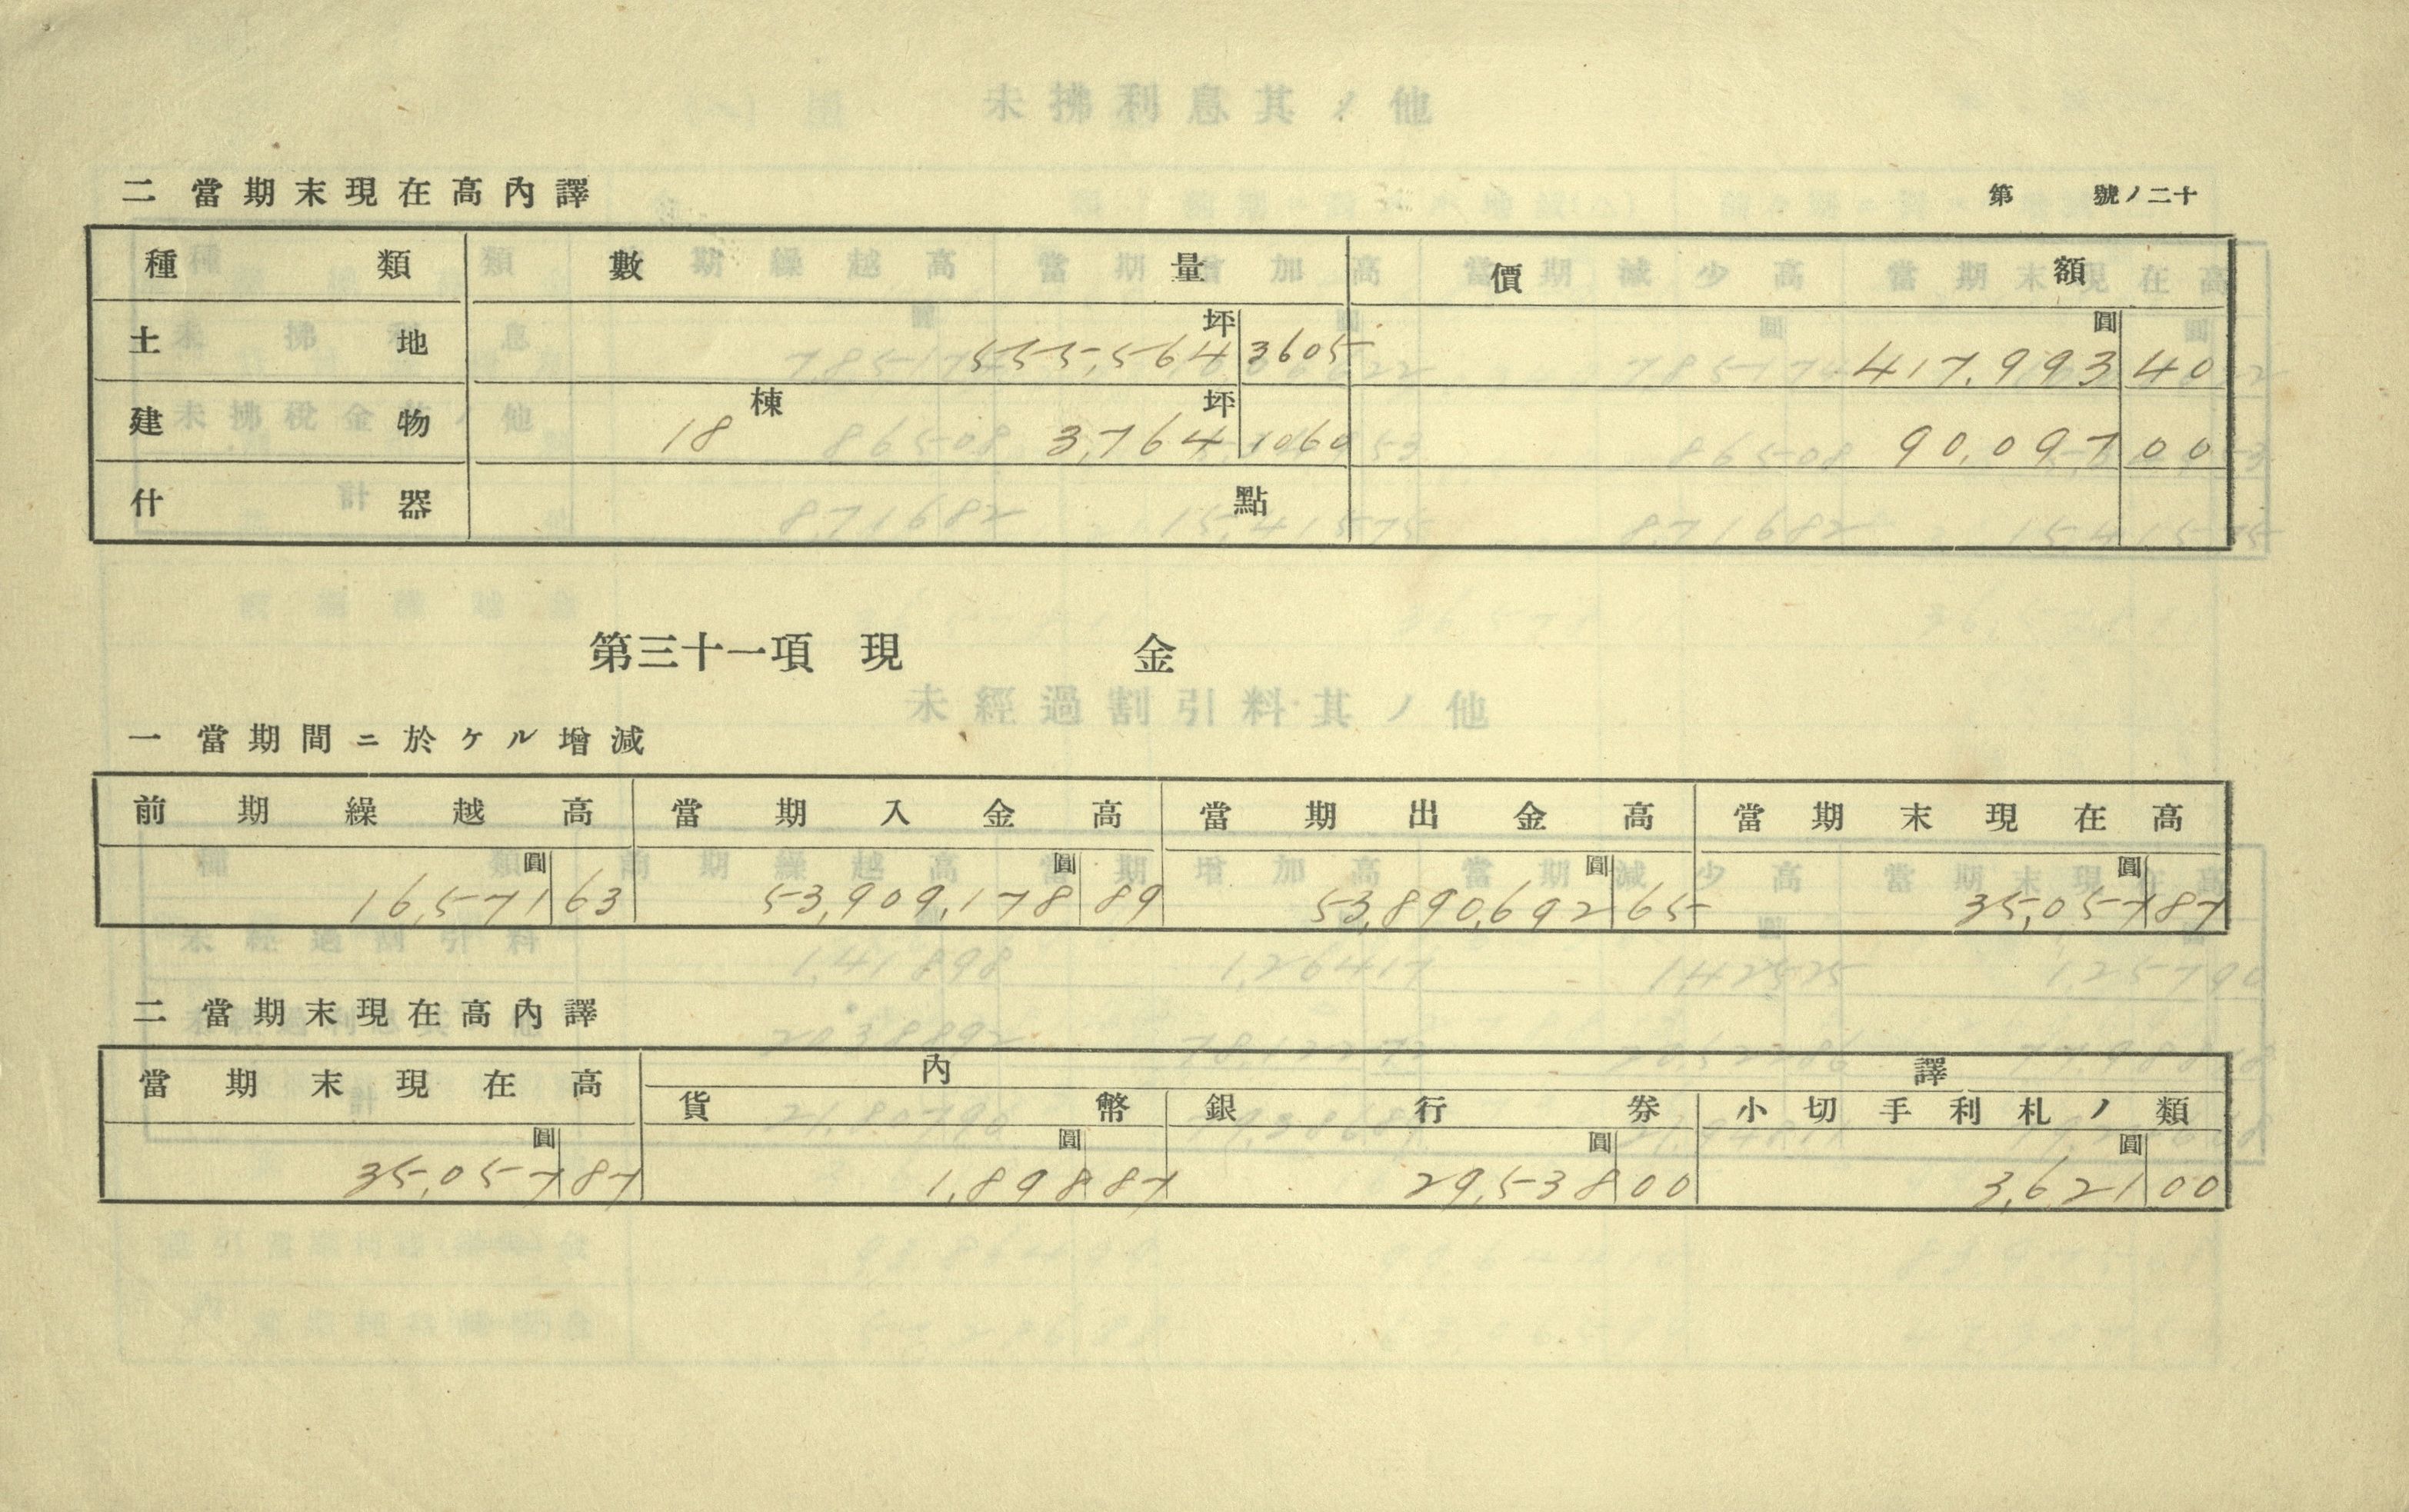 二 當期末現在高內譯 第 號ノ二十
種類 數量 價額
土地 坪 555,564 3605 圓 417,993 40
建物 棟 18 坪 3,764 1060 90,097 00
什器 點
第三十一項 現金
一 當期間ニ於ケル增減
前期繰越高 當期入金高 當期出金高 當期末現在高
圓 16,571 63 圓 53,909,178 89 圓 53,890,692 65 圓 35,057 87
二 當期末現在高內譯
當期末現在高 內譯
貨幣 銀行券 小切手利札ノ類
圓 35,057 87 圓 1,898 87 圓 29,538 00 圓 3,621 00